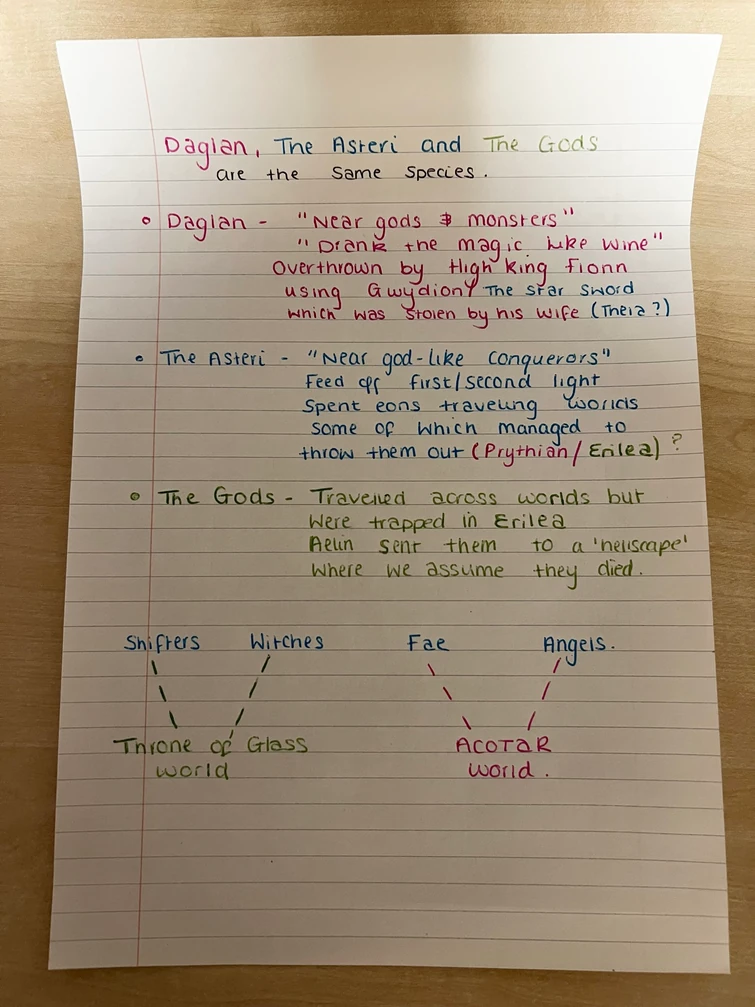 Daglan, The Asteri and The Gods
are the same species.
Daglan - "Near gods & monsters"
"Drank the magic like wine"
Overthrown by High king Fionn
using Gwydion? The star sword
which was stolen by his wife (Theia?)
The Asteri - "Near god-like conquerors"
Feed off first/second light
Spent eons traveling worlds
some of which managed to
throw them out (Prythian/Erilea)?
The Gods - Travelled across worlds but
Were trapped in Erilea
Aelin sent them to a 'hellscape'
Where we assume they died.
Shifters Witches Fae Angels.
Throne of Glass ACOTAR
world world.